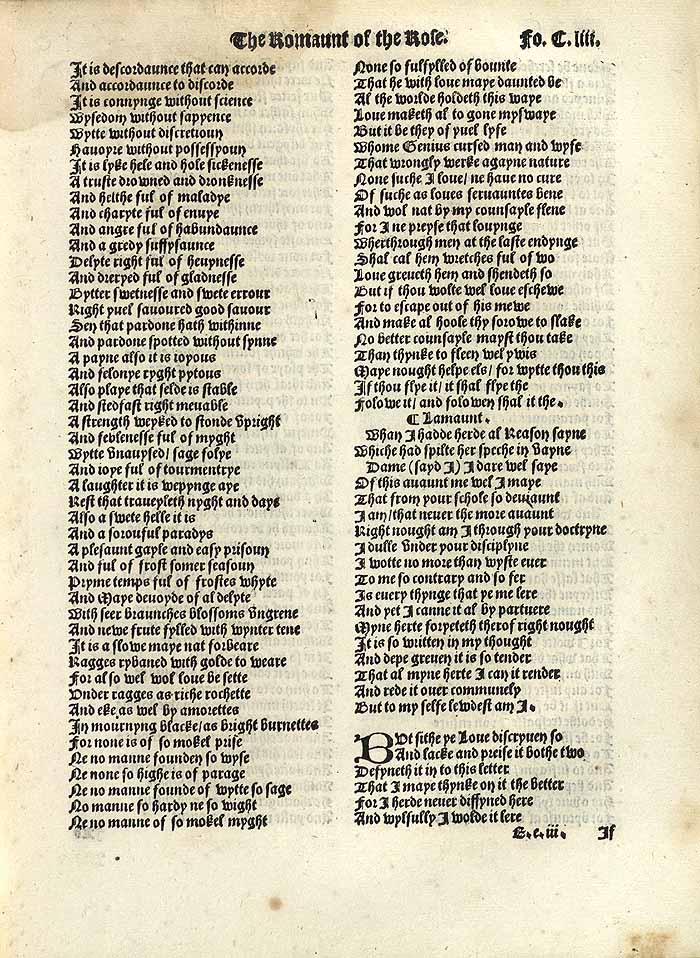 The Romaunt of the Rose.
Fo. C. liii.
It is descordaunce that can accorde
And accordaunce to discorde
It is connynge without science
Wysedom without sappence
Wytte without discretioun
Hauoyre without possessyoun
It is lyke hele and hole sickenesse
A truste drowned and dronknesse
And helthe ful of maladye
And charyte ful of enuye
And angre ful of habundaunce
And a gredy suffysaunce
Delyte right ful of heuynesse
And dreryed ful of gladnesse
Bytter swetnesse and swete errour
Right yuel sauoured good sauour
Sen that pardone hath withinne
And pardone spotted without synne
A payne also it is ioyous
And felonye ryght pytous
Also playe that selde is stable
And stedfast right meuable
A strength weyked to stonde vpright
And feblenesse ful of myght
Wytte vnauysed/ sage folye
And ioye ful of tourmentrye
A laughter it is weppynge aye
Rest that traueyleth nyght and daye
Also a swete helle it is
And a soroufull paradys
A plesaunt gayle and easy prisoun
And ful of frost somer seasoun
Pryme temps ful of frostes whyte
And Maye deuoyde of al delyte
With seer braunches blossoms vngrene
And newe frute fylled with wynter tene
It is a slowe maye nat forbeare
Ragges rybaned with golde to weare
For also wel wol loue be sette
Vnder ragges as riche rochette
And eke as wel by amorettes
In mournyng blacke/ as bright burnettes
For none is of so mokel prise
Ne no manne founden so wyse
Ne none so highe is of parage
Ne no manne founde of wytte so sage
No manne so hardy ne so wight
Ne no manne of so mokel myght
None so fulfylled of bounte
That he with loue maye daunted be
Al the worlde holdeth this waye
Loue maketh al to gone myswaye
But it be they of yuel lyfe
Whome Genius cursed man and wyfe
That wrongly werke agayne nature
None suche I loue/ ne haue no cure
Of suche as loues seruauntes bene
And wol nat by my counsayle flene
For I ne preyse that louynge
Wherthrough men at the laste endynge
Shal cal hem wretches ful of wo
Loue greueth hem and shendeth so
But if thou wolte wel loue eschewe
For to escape out of his mewe
And make al hoole thy sorowe to slake
No better counsayle mayst thou take
Than thynke to fleen wel ywis
Maye nought helpe els/ for wytte thou this
If thou flye it/ it shal flye the
Folowe it/ and folowen shal it the.
¶ Lamaunt.
Whan I hadde herde al Reason sayne
Whiche had spilte her speche in vayne
Dame (sayd I) I dare wel saye
Of this auaunt me wel I maye
That from your schole so deuiaunt
I am/ that neuer the more auaunt
Right nought am I through your doctryne
I dulle vnder your disciplyne
I wotte no more than wyste euer
To me so contrary and so fer
Is euery thynge that ye me lere
And yet I canne it al by partuere
Myne herte foryeteth therof right nought
It is so written in my thought
And depe greuen it is so tender
That al myne herte I can it render
And rede it ouer communely
But to my selfe lewdest am I.
BVt sithe ye Loue discryuen so
And lacke and preise it bothe two
Defyneth it in to this letter
That I maye thynke on it the better
For I herde neuer diffyned here
And wylfully I wolde it lere
E.e.iii.
If